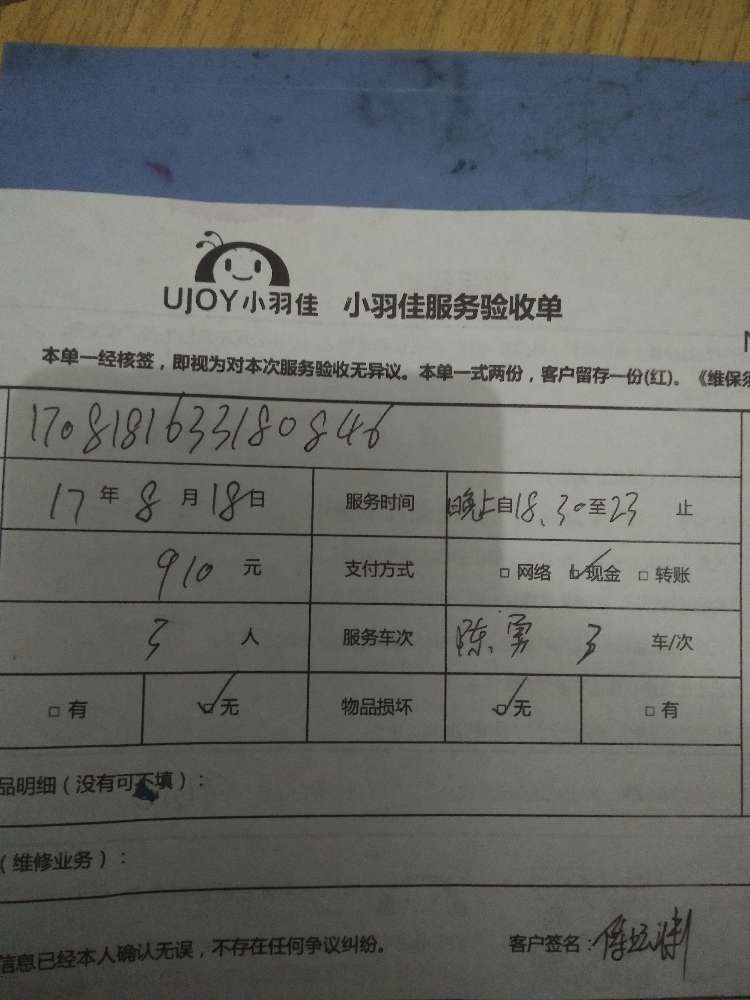 UJOY小羽佳 小羽佳服务验收单
本单一经核签，即视为对本次服务验收无异议。本单一式两份，客户留存一份(红)。《维保须
1708181633180846
17年8月18日 服务时间 晚上自18.30至23止
910元 支付方式 □网络 ☑现金 □转账
3人 服务车次 陈勇 3 车/次
□有 ☑无 物品损坏 ☑无 □有
品明细（没有可不填）：
（维修业务）：
信息已经本人确认无误，不存在任何争议纠纷。 客户签名：